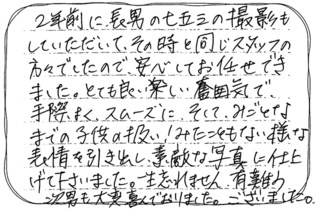 2年前に、長男の七五三の撮影も
していただいて、その時と同じスタッフの
方々でしたので、安心してお任せでき
ました。とても良い楽しい雰囲気で、
手際よく、スムーズに、そして、みごとな
までの子供の扱い!みたこともない様な
表情を引き出し、素敵な写真に仕上
げて下さいました。一生忘れません。有難う
次男も大変喜んでおりました。ございました。